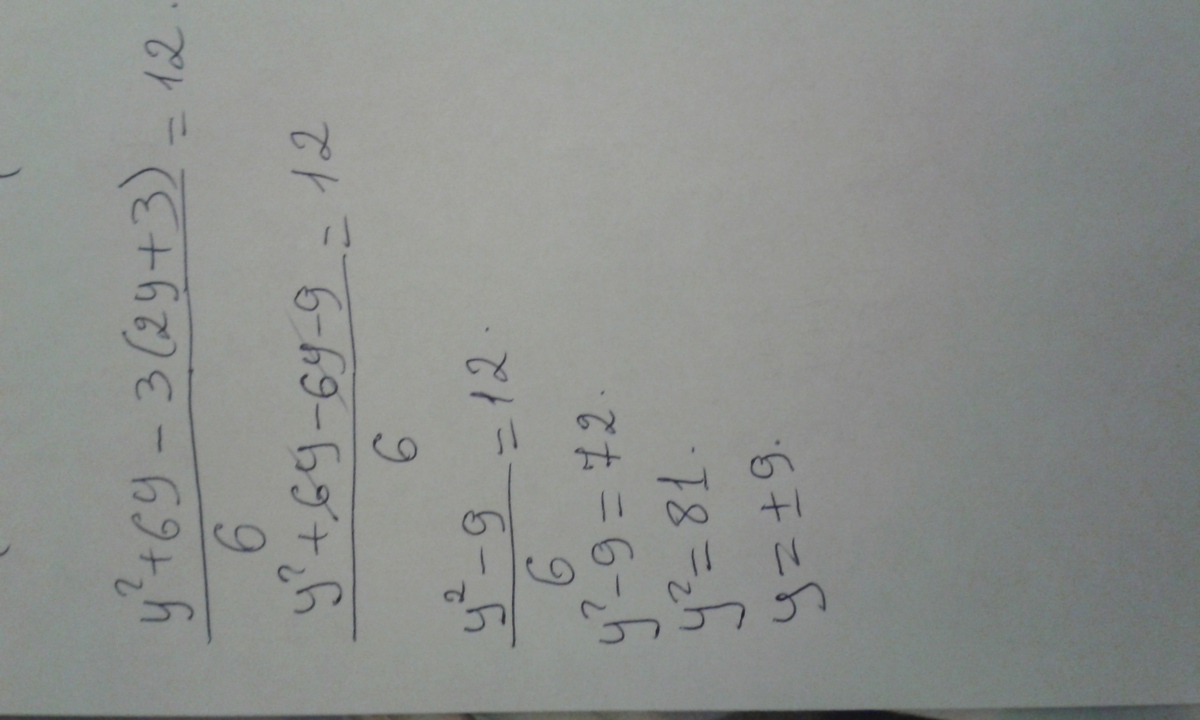 y²+6y - 3(2y+3) = 12.
6
y²+6y-6y-9 = 12
6
y²-9 = 12.
6
y²-9=72.
y²=81.
y=±9.